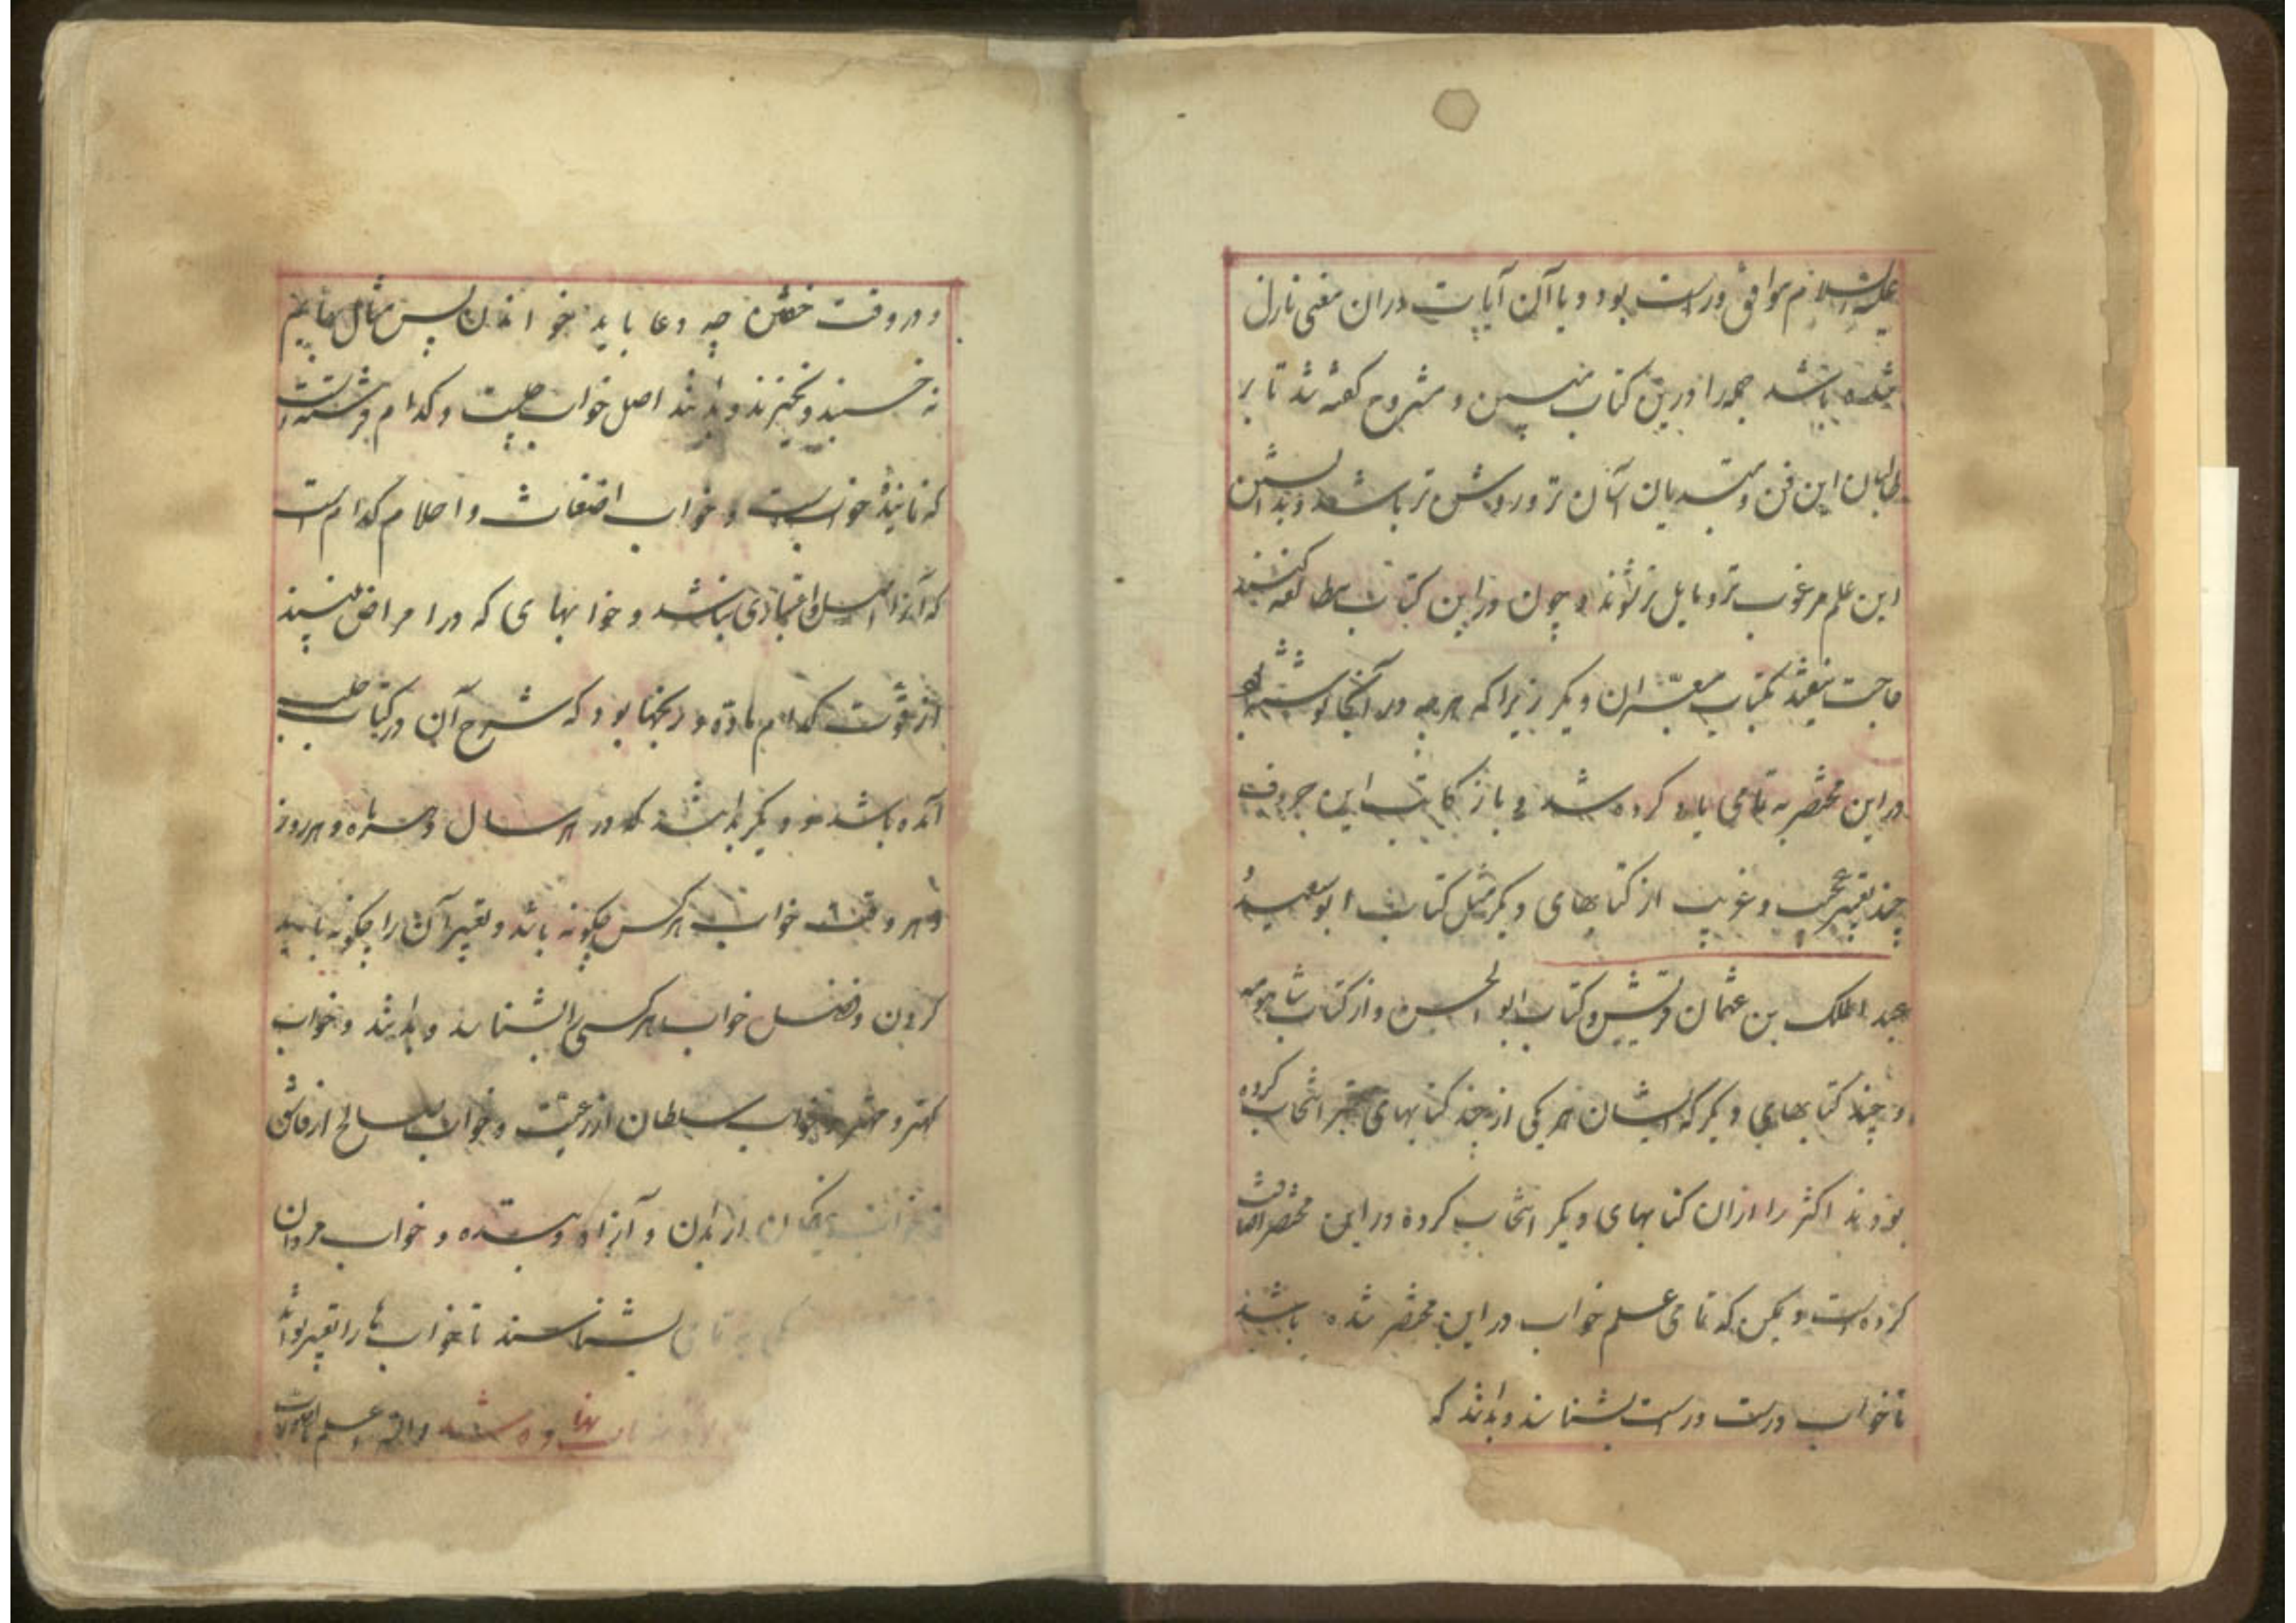 علیه السلام موافق و راست بود و یا آن آیات در آن معنی نازل
شده باشد همه را درین کتاب مبین و مشروح گفته شد تا بر
طالبان این فن و مبتدیان آسان تر و روشن تر باشد و بدانستن
این علم مرغوب تر و مایل تر شوند و چون در این کتاب مطالعه کنند
حاجت نیفتد بکتاب معبّران دیگر زیرا که هر چه در آنجا نوشته‌اند
در این مختصر به تمامی یاد کرده شد و باز کاتب این حروف
چند تعبیر عجیب و غریب از کتابهای دیگر مثل کتاب ابو سعید
عبد الملک بن عثمان و کتاب ابو الحسن و از کتاب
و چند کتابهای دیگر که ایشان هر یکی از چند کتابهای معتبر انتخاب کرده
بودند اکثر را از آن کتابهای دیگر انتخاب کرده در این مختصر اضافت
کرده است و یمکن که تمامی علم خواب در این مختصر شده باشد
تا خواب درست و راست بشناسند و بدانند که
و در وقت خفتن چه دعا باید خواندن پس
نه خسبند و نخیزند و بدانند اصل خواب چیست و کدام فرشته است
که نماینده خوابست و خواب اضغاث و احلام کدام است
که آنرا اصل و اعتباری نباشد و خوابهای که در امراض بینند
از قوت کدام ماده و رنجها بود که شرح آن در کتاب طب
آمده باشد و دیگر بدانند که در هر سال و هر ماه و هر روز
و هر وقت خواب هر کس چگونه باشد و تعبیر آن را چگونه باید
کردن و فضل خواب هر کسی را بشناسند و بدانند و خواب
کهتر و مهتر و خواب سلطان از رعیت و خواب صالح از فاسق
و خواب نیکان از بدان و آزاد و بنده و خواب مردان
بشناسند تا خواب ها را تعبیر تواند
شد والله اعلم بالصواب